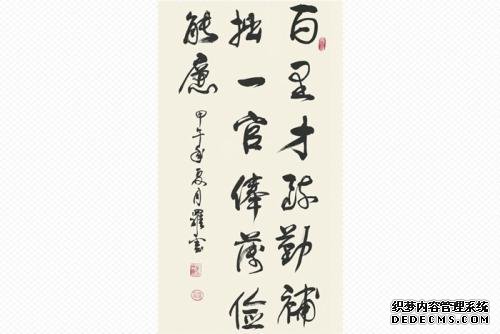 百里才疏勤補
拙一官俸薄俭
能廉
甲午年夏月羅
织梦内容管理系统
DEDECMS.COM